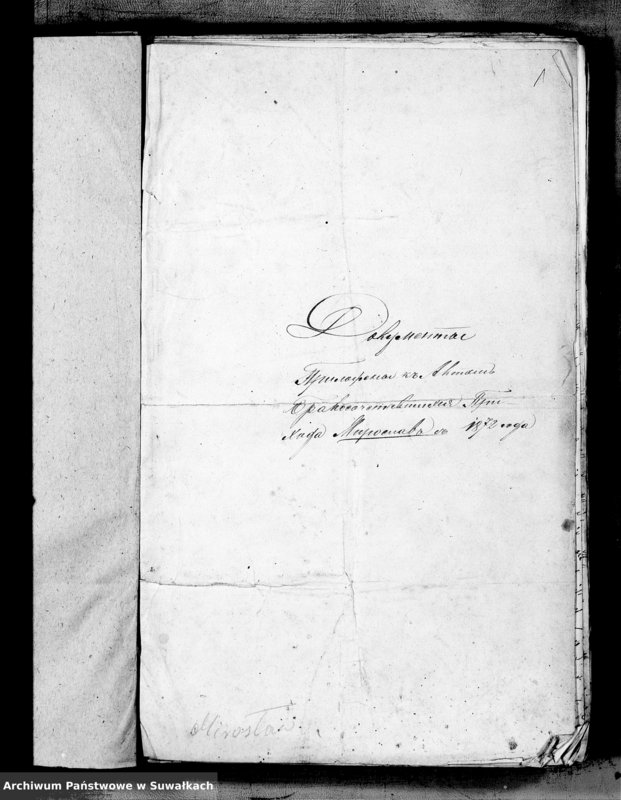 1
Документа
Приложеная къ Актамъ
Бракосочетавшимся При
хода Мирославъ съ 1872 года
Mirosław
Archiwum Państwowe w Suwałkach